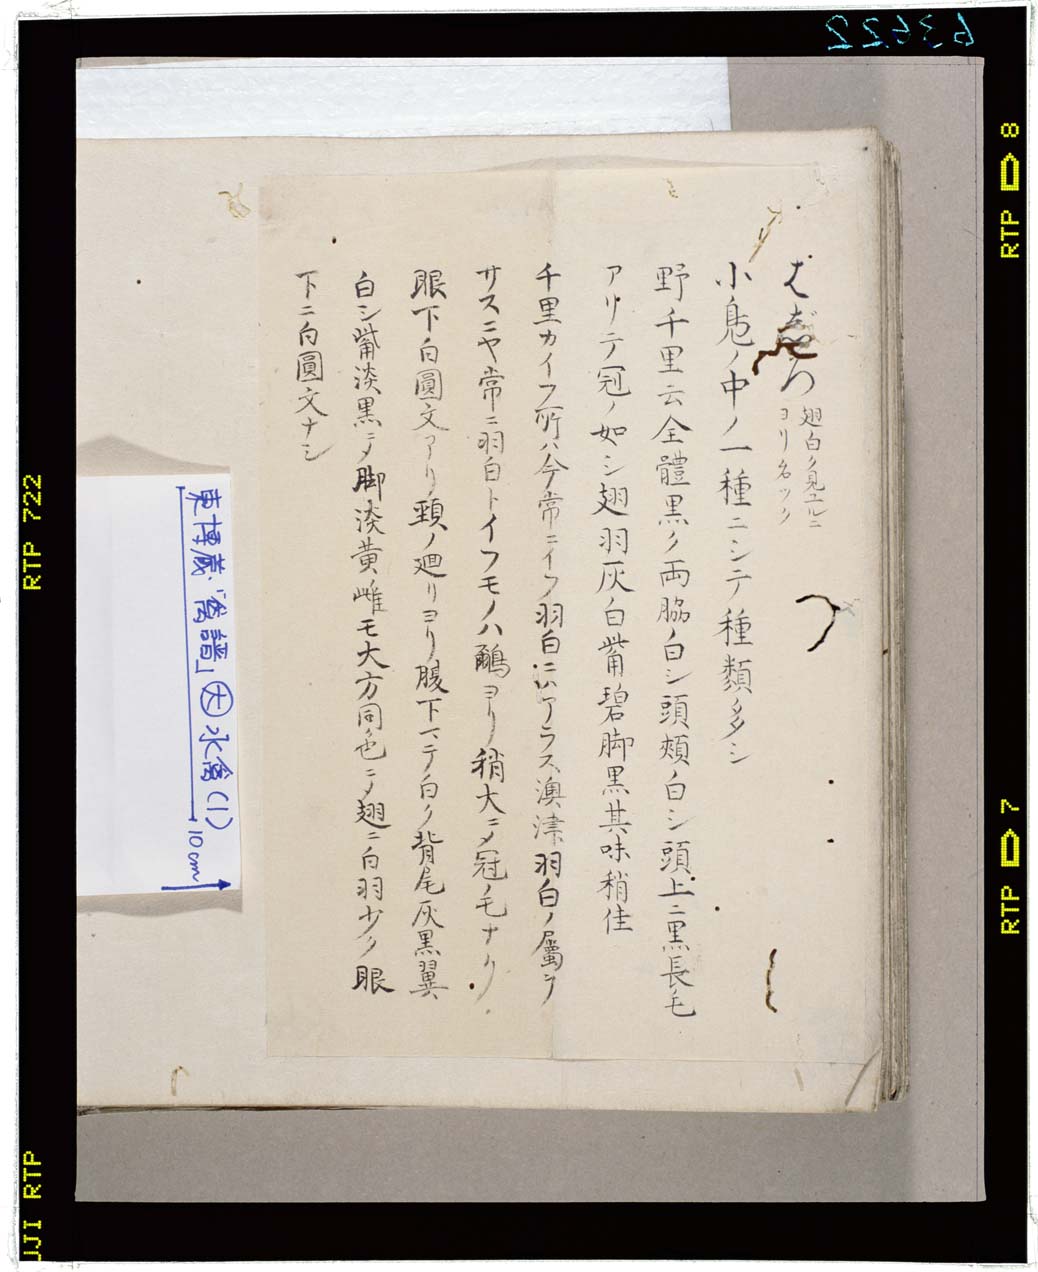 63622
はじろ
翅白ク見ユルニ
ヨリ名ツク
小鳧ノ中ノ一種ニシテ種類多シ
野千里云全體黒ク両脇白シ頭頰白シ頭上ニ黒長毛
アリテ冠ノ如シ翅羽灰白觜碧脚黒其味稍佳
千里カイフ所ハ今常ニイフ羽白ニハアラス澳津羽白ノ屬ヲ
サスニヤ常ニ羽白トイフモノハ鸍ヨリ稍大ニメ冠毛ナク
眼下白圓文アリ頸ノ廻リヨリ腹下マテ白ク背尾灰黒翼
白シ觜淡黒ニメ脚淡黄雌モ大方同色ニメ翅ニ白羽少ク眼
下ニ白圓文ナシ
東博蔵「禽譜」 水禽(1)
10cm
RTP 8
RTP 7
RTP 722
UJI RTP